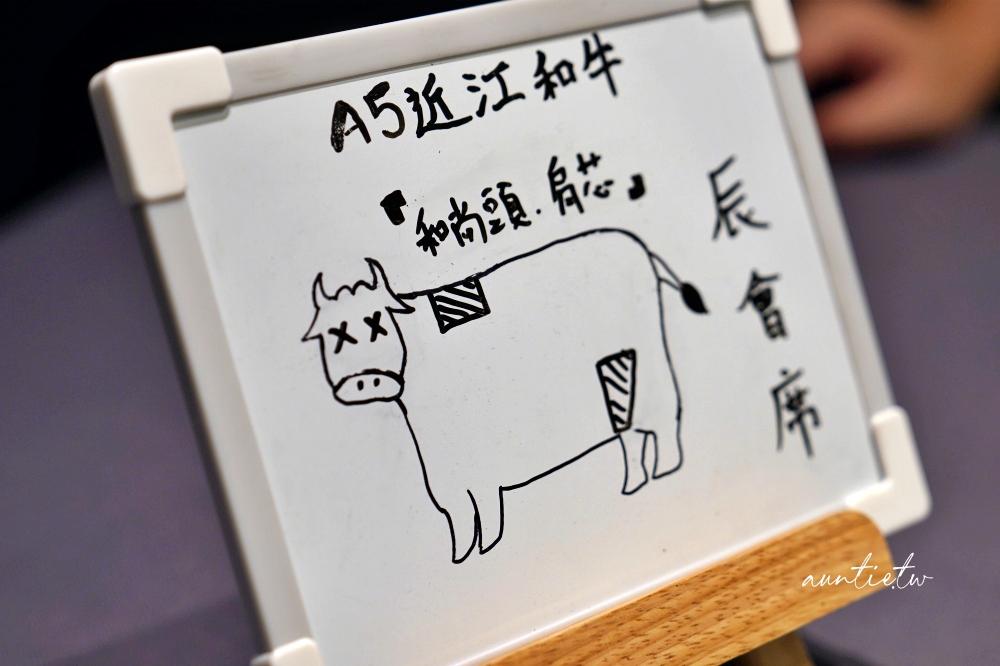 A5近江和牛
『和尚頭.肩芯』
辰會席
auntie.tw